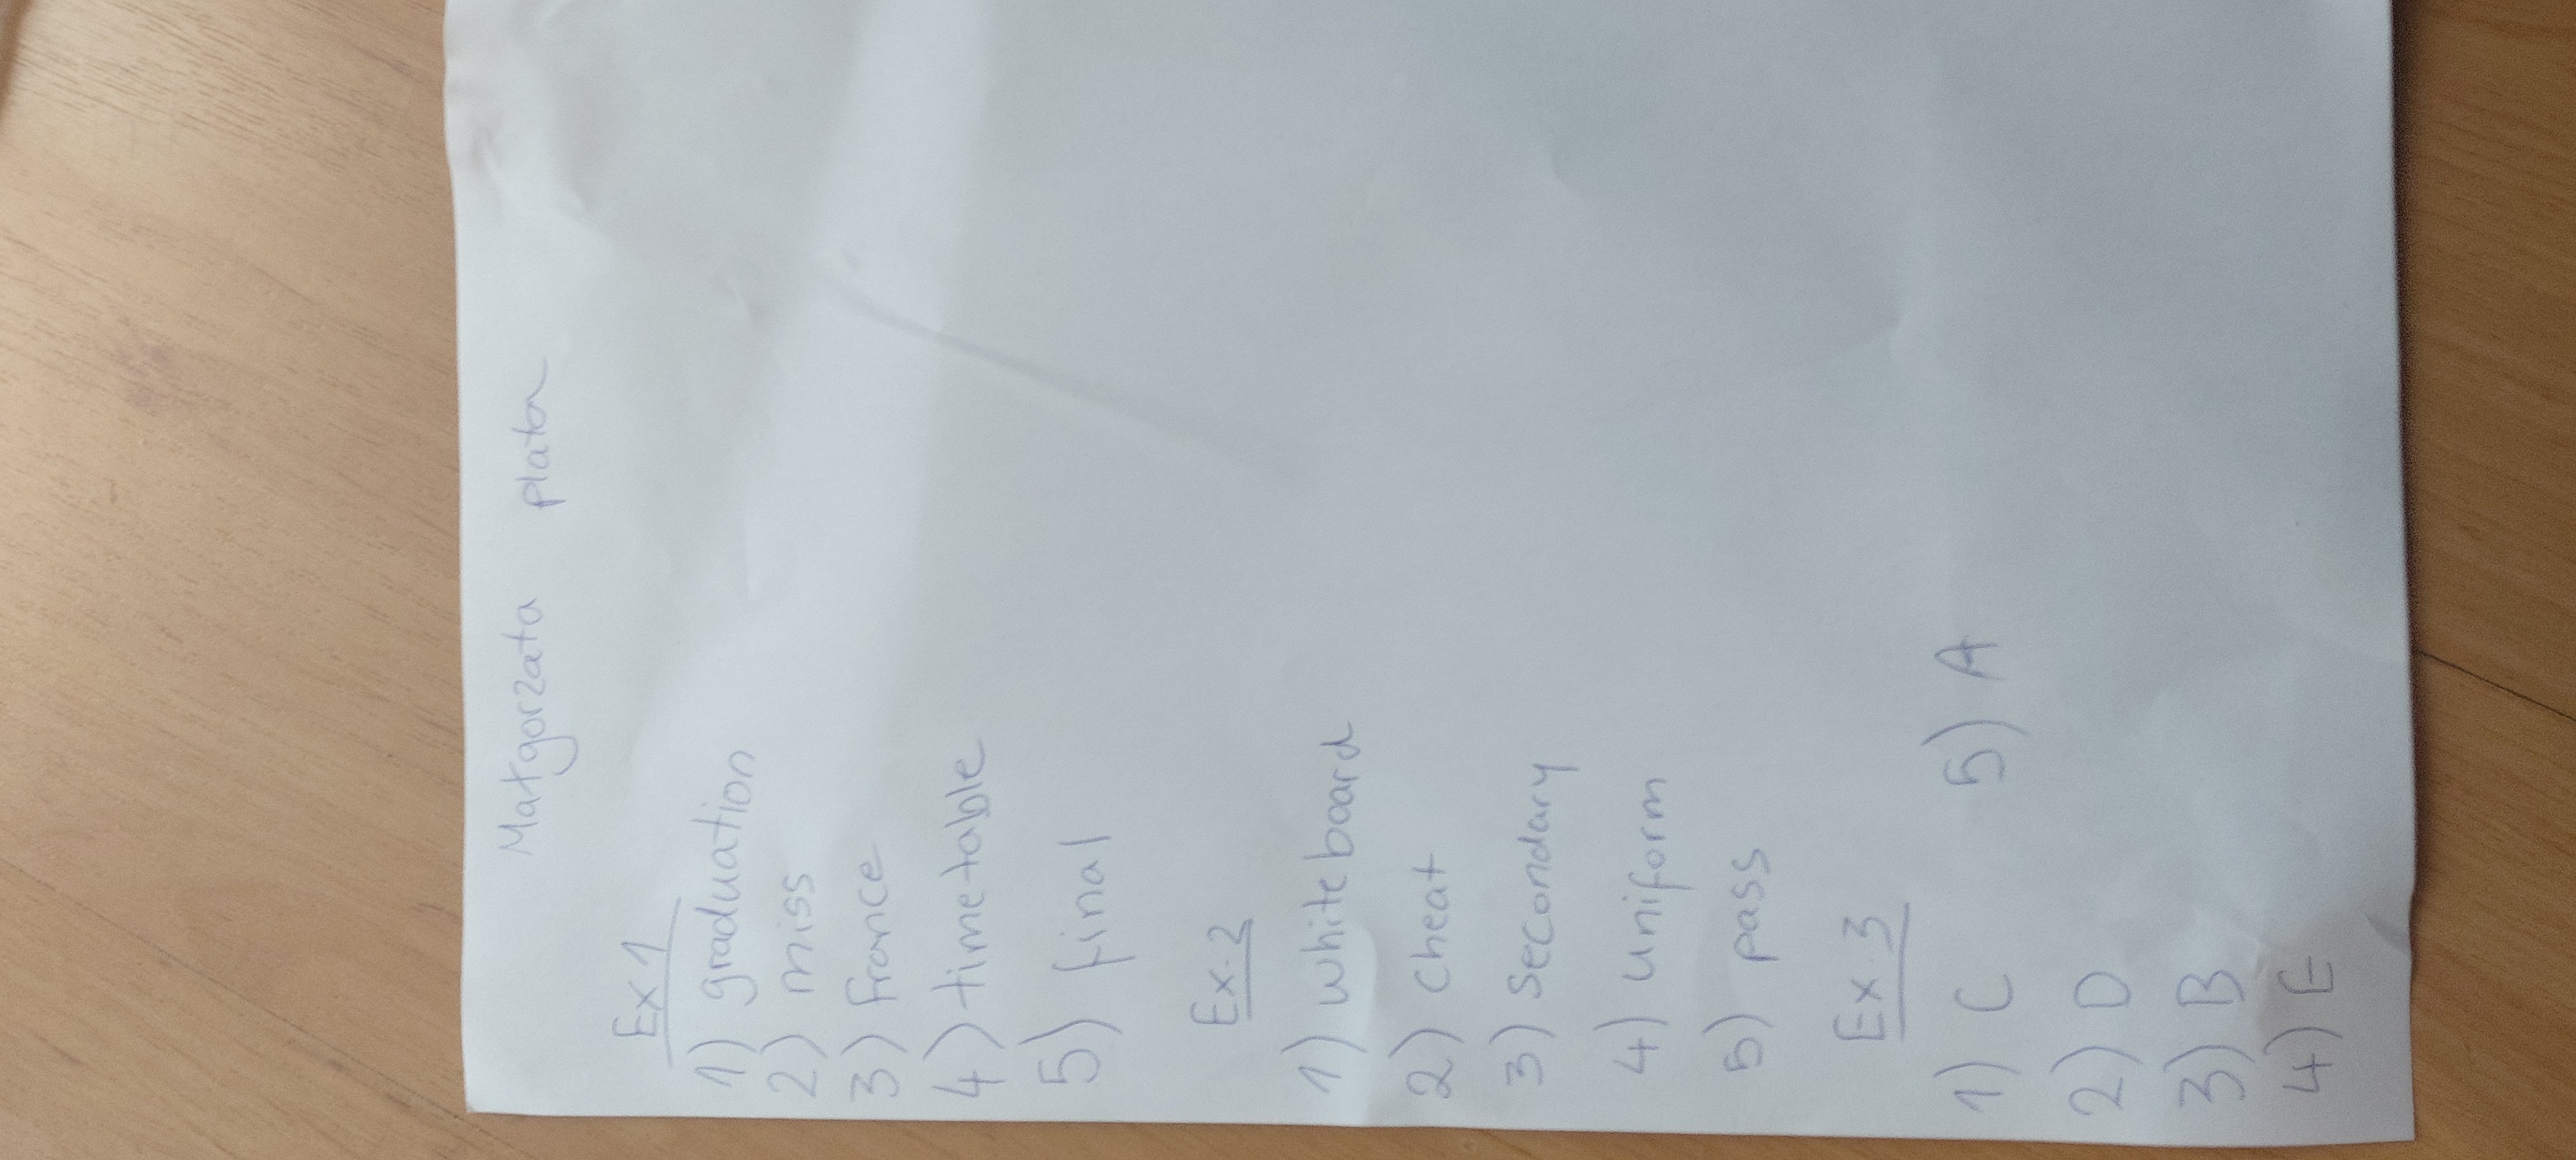 Małgorzata Plata
Ex 1
1) graduation
2) miss
3) france
4) timetable
5) final
Ex. 2
1) whiteboard
2) cheat
3) secondary
4) uniform
5) pass
Ex. 3
1) C 5) A
2) D
3) B
4) E